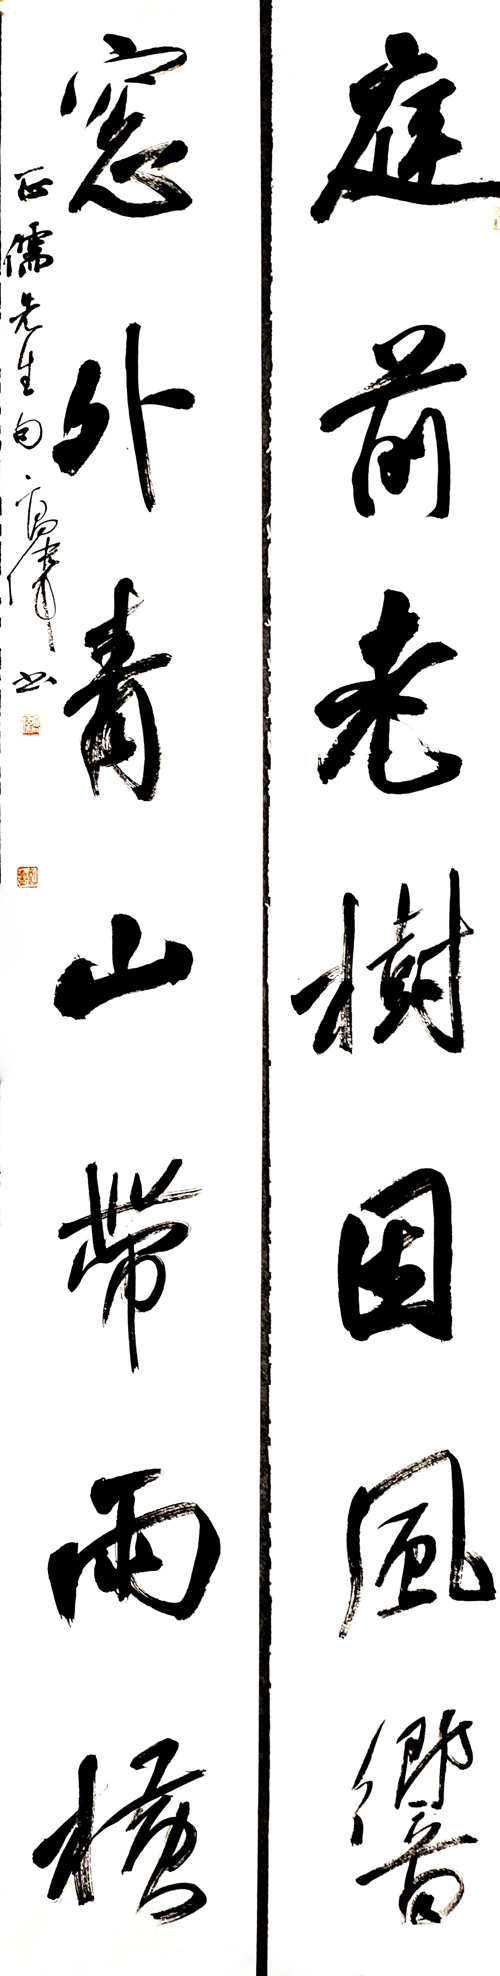 庭前老樹因風響
窓外青山帶雨橫
正儒先生句
書